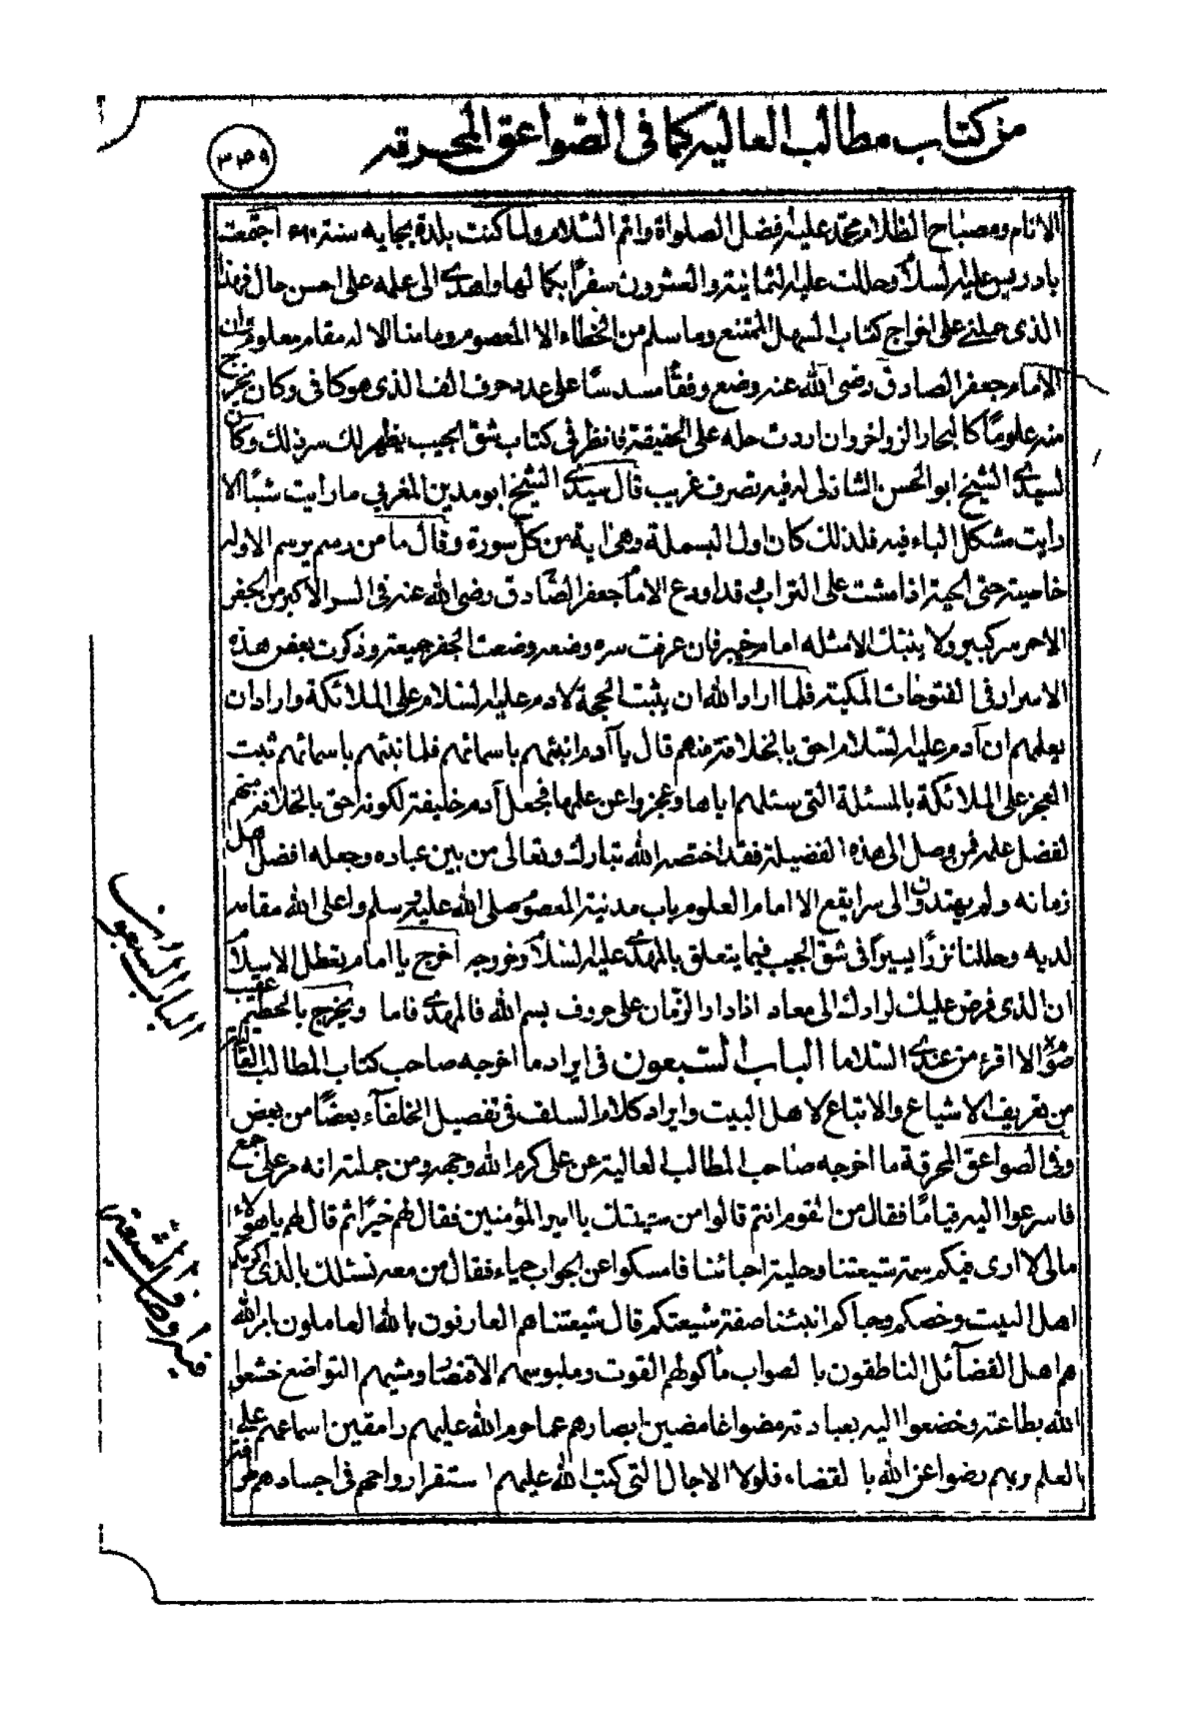 من كتاب مطالب العاليه كما فى الصواعق المحرقه
٣٥٩
الانام ومصباح الظلام محمد عليه افضل الصلواة واتم السلام ولما كنت ببلدة بجايه سنة اجتمعت
بادريس عليه السلام وحللت عليه الثمانية والعشرون سفرًا بكمالها واهدى الى علمه على احسن حال فهذا
الذى حملنى على اخراج كتاب السهل الممتنع وما سلم من الخطاء الا المعصوم وما منا الا له مقام معلوم ان
الامام جعفر الصادق رضى الله عنه وضع وفقًا مسدسًا على عدد حرف الف الذى هو كافى وكان يخرج
منه علومًا كالبحار الزواخر وان اردت حله على الحقيقة فانظر فى كتاب شق الجيب يظهر لك سر ذلك وكان
لسيدى الشيخ ابو الحسن الشاذلى له فيه تصرف غريب قال سيدى الشيخ ابو مدين المغربي ما رايت شيئًا الا
رأيت مشكل الباء فيه فلذلك كان اول البسملة وهى اية من كل سورة وقال ما من رسم يرسم الا وله
خاصية حتى الحية اذا مشت على التراب و قد اودع الامام جعفر الصّادق رضى الله عنه فى السر الاكبر من الجفر
الاحمر سر كبير ولا ينبئك الا مثله امام خبير فان عرفت سره وضعه وضعت الجفر جميعه وذكرت بعض هذه
الاسرار فى الفتوحات المكية فلما اراد الله ان يثبت الحجة لادم عليه السلام على الملائكة واراد ان
يعلمهم ان آدم عليه السّلام احق بالخلافة منهم قال يا آدم انبئهم باسمائهم فلما نبئهم باسمائهم ثبت
العجز على الملائكة بالمسئلة التى سئلهم اياها وعجزوا عن علمها فجعل آدم خليفة لكونه احق بالخلافة منهم
لفضل علمه فمن وصل الى هذه الفضيلة فقد اختصه الله تبارك وتعالى من بين عباده وجعله افضل اهل
زمانه ولم يهتدون الى سر ايقع الا امام العلوم باب مدينة المعصوم صلى الله عليه وسلم واعلى الله مقامه
لديه وحللنا نزرًا يسيرًا فى شق الجيب فيما يتعلق بالمهدى عليه السلام وخروجه اخرج يا امام يعطل الاسلام
ان الذى فرض عليك لرادك الى معاد اذا دار الزمان على حروف بسم الله فالمهدى قاما ويخرج بالحطيم عقيب
صوم الا اقرء من عندى السّلاما الباب السبعون فى ايراد ما اخرجه صاحب كتاب المطالب العاليه
من تعريف الاشياع والاتباع لاهل البيت وايراد كلام السلف فى تفصيل الخلفآء بعضًا من بعض
وفى الصواعق المحرقة ما اخرجه صاحب المطالب العالية عن على كرم الله وجهه ومن جملته انه مر على جمع
فاسرعوا اليه قيامًا فقال من القوم انتم قالوا من شيعتك يا امير المؤمنين فقال لهم خيرًا ثم قال لهم يا هؤلاء
مالى لا ارى فيكم سمة شيعتنا وحلية احبائنا فامسكوا عن الجواب حياء فقال من معه نسئلك بالذى اكرمكم
اهل البيت وخصكم وحباكم انبئنا صفة شيعتكم قال شيعتنا هم العارفون بالله العاملون بامر الله
هم اهل الفضآئل الناطقون بالصواب مأكولهم القوت وملبوسهم الاقتصاد ومشيهم التواضع خشعوا
الله بطاعته وخضعوا اليه بعبادته مضوا غامضين ابصارهم عما حرم الله عليهم رامقين اسماعهم على
العلم وبهم رضوا عن الله بالقضاء فلولا الاجال التى كتب الله عليهم استقرار رواحهم فى اجسادهم
الباب السبعون
فيه اوصاف الشيعة